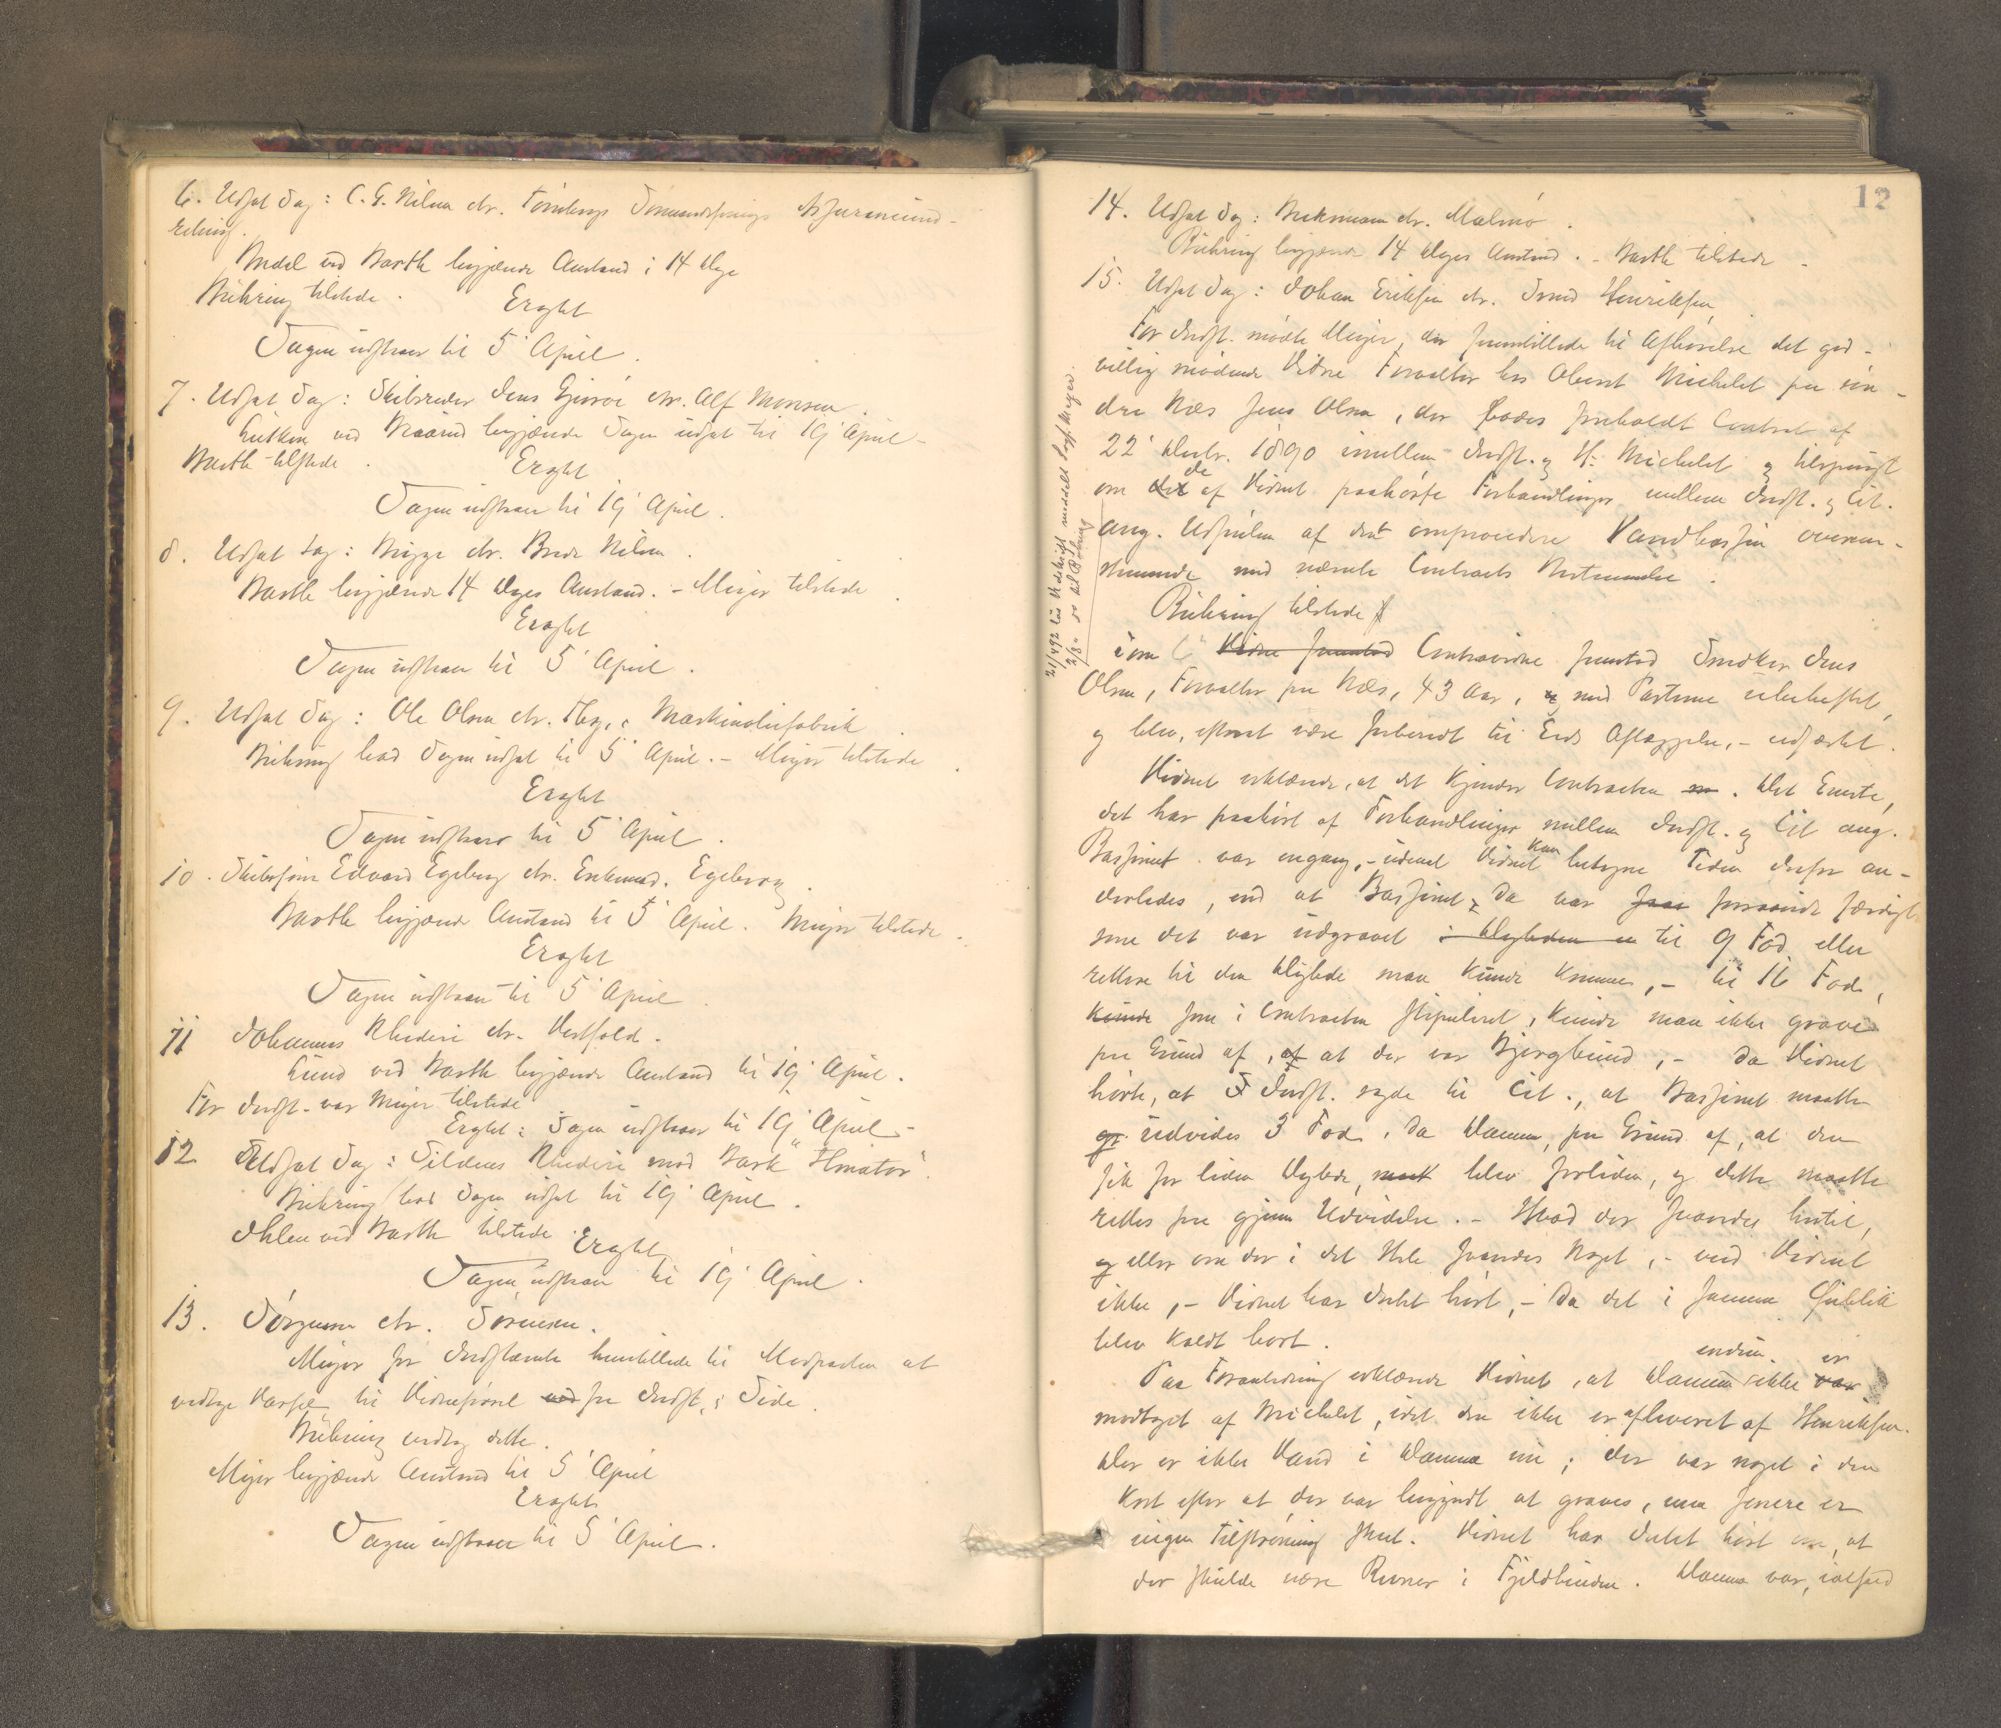 6. Udsat Sag: C. G. Nilsen ctr. Tønsbergs Sømandsforenings
Bødal ved Barth begjærede Anstand i 14 Dage
Bühring tilstede.
Eragtet
Sagen udstaaer til 5' April.
7. Udsat Sag: Skibsreder Jens Gjerøe ctr. Alf Monsen.
ved begjærede Sagen udsat til 19' April –
Barth tilstede.
Eragtet
Sagen udstaaer til 19' April.
8. Udsat Sag: Brygge ctr. Brede Nilsen.
Barth begjærede 14 Dages Anstand. – Meyer tilstede.
Eragtet
Sagen udstaaer til 5' April.
9. Udsat Sag: Ole Olsen ctr. Tbg.s Maskinoliefabrik.
Bühring bad Sagen udsat til 5' April. – Meyer tilstede.
Eragtet
Sagen udstaaer til 5' April.
10. Edvard Egeberg ctr. Enkemad. Egeberg.
Barth begjærede Anstand til 5' April. Meyer tilstede.
Eragtet
Sagen udstaaer til 5' April.
11 Johannes Rhederi ctr. Vestfold.
Lund ved Barth begjærede Anstand til 19' April.
For Indst. var Meyer tilstede
Eragtet: Sagen udstaaer til 19' April –
12 Udsat Sag: Sildens Rhederi mod Bark "
Bühring bad Sagen udsat til 19' April.
Ihlen ved Barth tilstede.
Eragtet
Sagen udstaaer til 19' April.
13. Jørgensen ctr. Sørensen.
Meyer for Indstævnte henstillede til Modparten at
vedtage Varsel til Vidneførsel fra Indst.s Side.
Bühring vedtog dette.
Meyer begjærede Anstand til 5' April
Eragtet
Sagen udstaaer til 5' April.
12
14. Udsat Sag: ctr. Malmø.
Bühring begjærede 14 Dages Anstand. – Barth tilstede –
15. Udsat Sag: Johan Eriksen ctr. Henriksen,
For Indst. mødte Meyer, der fremstillede til Afhørelse det god-
villig mødende Vidne Forvalter hos Oberst Michelet paa søn-
dre Næs Jens Olsen, der bades foreholdt Contract af
22' Decbr. 1890 imellem Indst. og H: Michelet og tilspurgt
om det de af Vidnet paahørte Forhandlinger mellem Indst. og Cit.
ang. Udførelsen af det omprocederede Vandbassin overens-
stemmende med nævnte Contracts Bestemmelse.
Bühring tilstede
Som Vidne fremstod Contravidne fremstod Snedker Jens
Olsen, Forvalter paa Næs, 43 Aar, og med Parterne ubeslægtet,
og blev, efterat være forberedt til Eds Aflæggelse, – edfæstet.
Vidnet erklærede, at det kjender Contracten. Det Eneste,
det har paahørt af Forhandlinger mellem Indst. og Cit ang.
Bassinet var engang, – uden at Vidnet kan betegne Tiden derfor an-
derledes, end at Bassinet da var forsaavidt færdigt
som det var udgravet i Dybden til 9 Fod eller
rettere til den Dybde man kunde komme, – til 16 Fod,
kunde som i Contracten stipuleret, kunde man ikke grave
paa Grund af, at der var Bjergbund, – da Vidnet
hørte, at Indst. sagde til Cit., at Bassinet maatte
udvides 3 Fod, da Dammen, paa Grund af, at den
fik for liden Dybde, blev forliden, og dette maatte
rettes paa gjennem Udvidelse. – Hvad der svaredes hertil,
og eller om der i det Hele svaredes Noget, – ved Vidnet
ikke, – Vidnet har Intet hørt, – da det i samme Øieblik
blev kaldt bort.
Paa Foranledning erklærede Vidnet, at Dammen endnu ikke var er
modtaget af Michelet, idet den ikke er afleveret af Henriksen.
Der er ikke Vand i Dammen nu; der var noget i den
kort efter at der var begyndt at graves, men senere er
ingen Tilstrømning skeet. Vidnet har Intet hørt om, at
der skulde være Revner i Fjeldbunden. Dammen var, ialfald